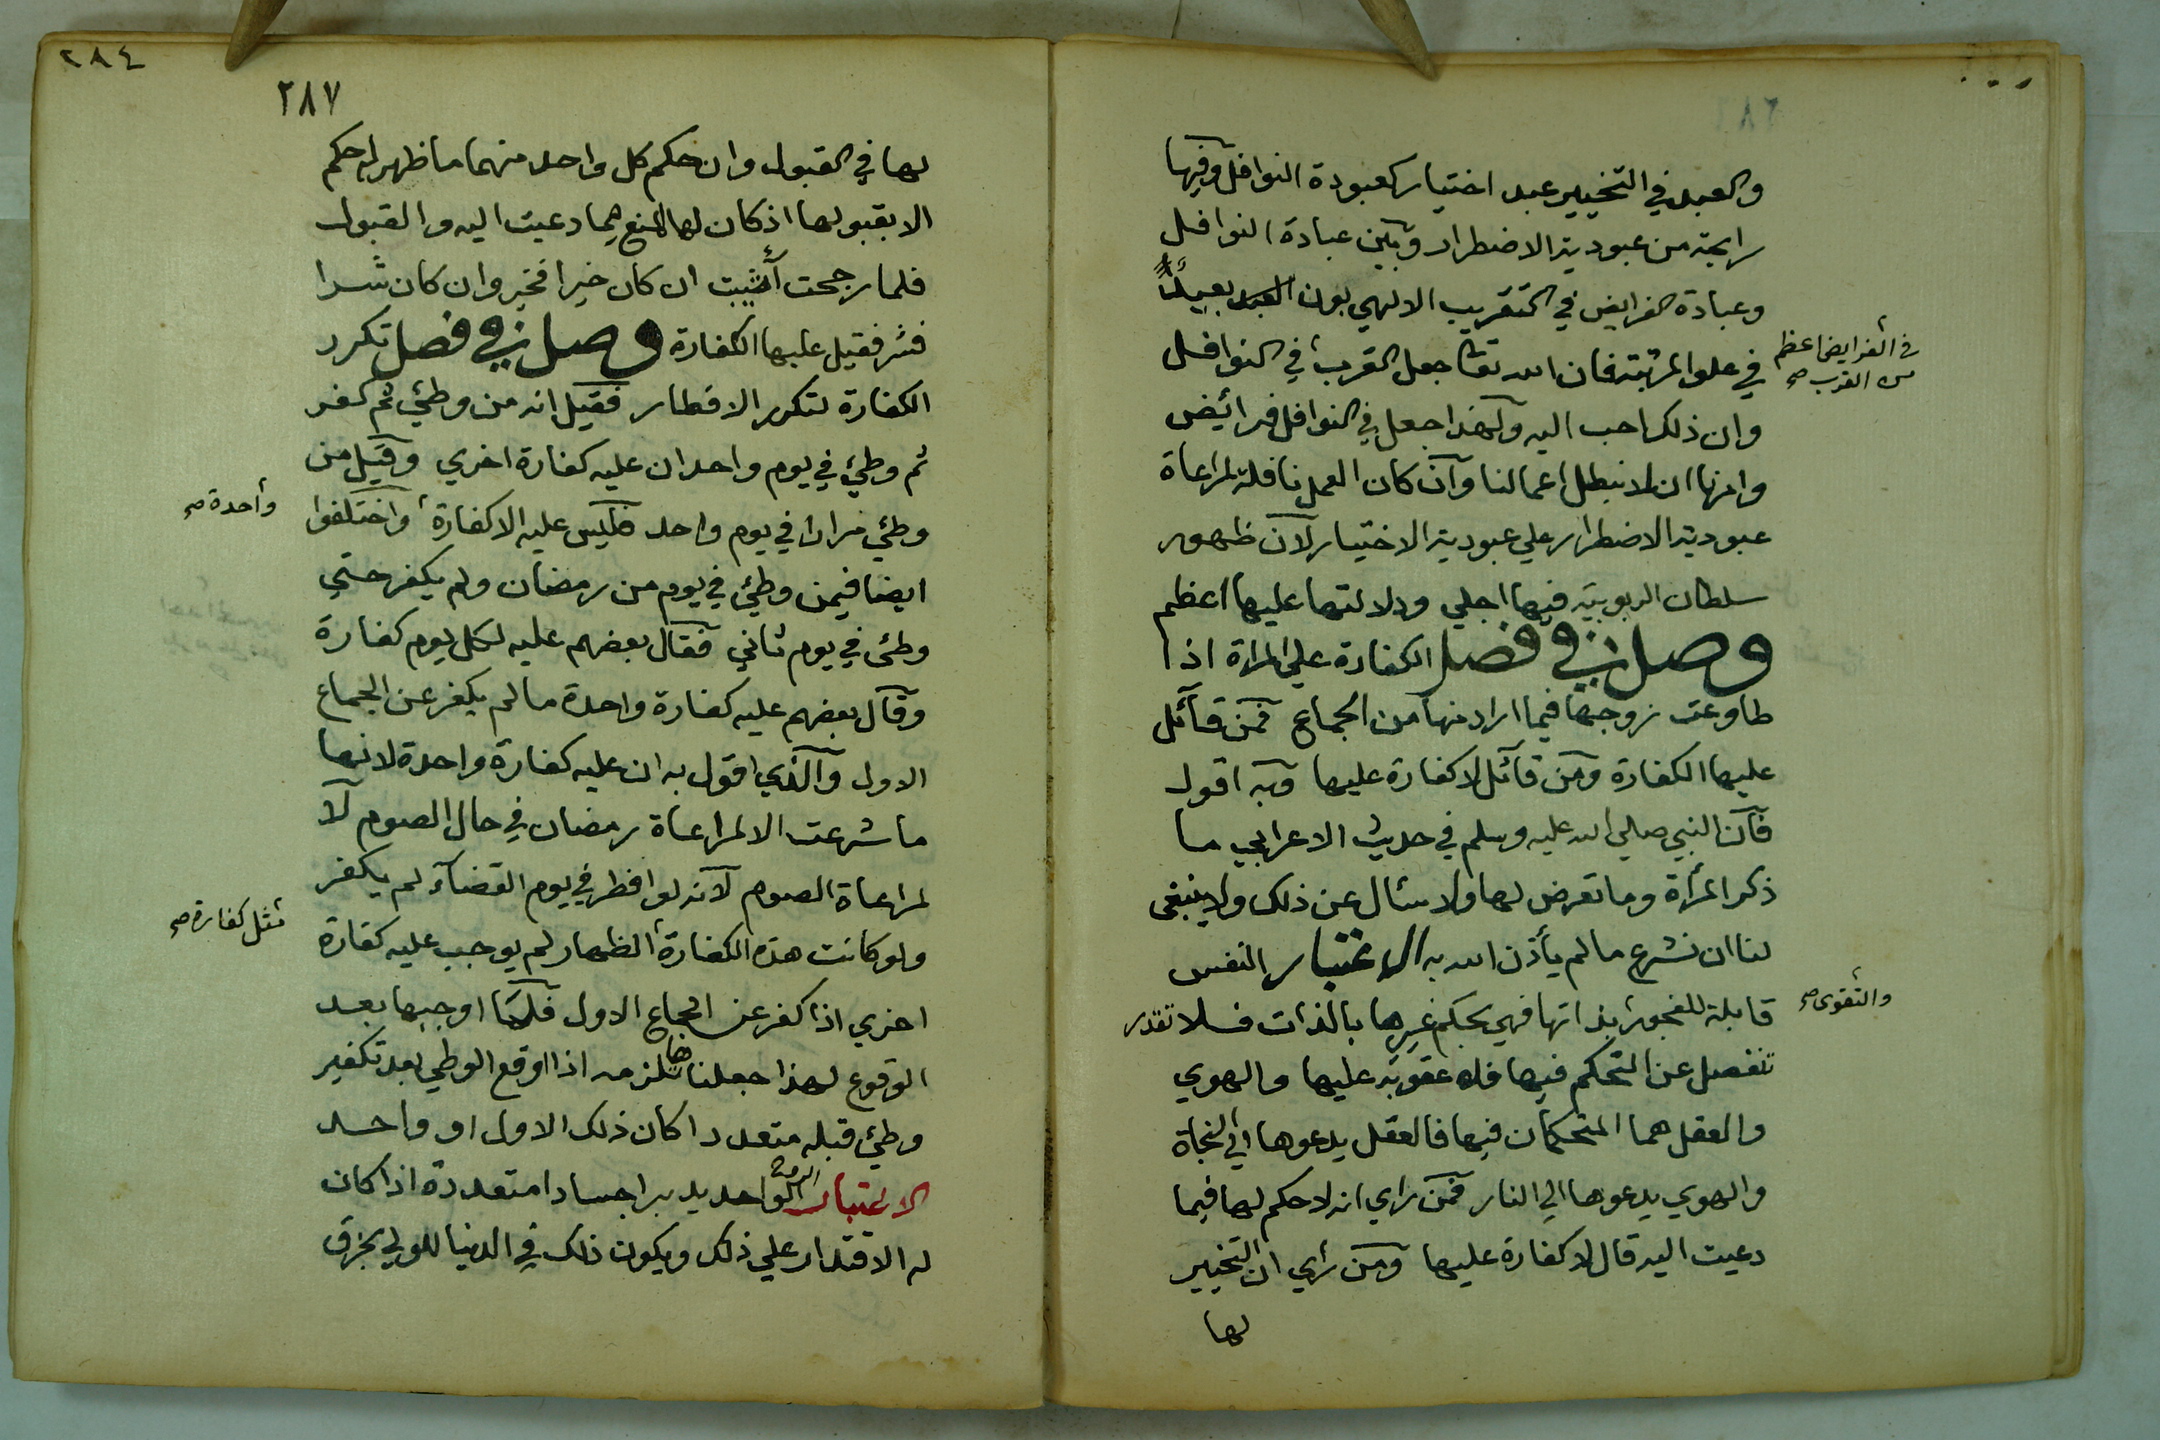 والعبد في التخيير عبد اختيار كعبودة النوافل وفيها
رايحة من عبودية الاضطرار وبين عبادة النوافل
وعبادة الفرايض في التقريب الالهي بون بعيد
في علو المرتبة فان الله تعالى جعل القرب في النوافل
في الفرايض اعظم
من القرب صح
وان ذلك احب اليه ولهذا جعل في النوافل فرائض
وامرنا ان لا نبطل اعمالنا وان كان العمل نافلة لمراعاة
عبودية الاضطرار علي عبودية الاختيار لان ظهور
سلطان الربوبية فيها اجلي ودلالتها عليها اعظم
وصل في فصل الكفارة علي المراة اذا
طاوعت زوجها فيما اراد منها من الجماع فمن قائل
عليها الكفارة ومن قائل لا كفارة عليها وبه اقول
فان النبي صلي الله عليه وسلم في حديث الاعرابي ما
ذكر المرأة وما تعرض لها ولا سئال عن ذلك ولا ينبغي
لنا ان نشرع ما لم يأذن الله به الاعتبار النفس
قابلة للفجور بذاتها فهي بحكم غيرها بالذات فلا تقدر
والتقوى صح
تنفصل عن التحكم فيها فلا عقوبة عليها والهوي
والعقل هما المتحكمان فيها فالعقل يدعوها الي النجاة
والهوي يدعوها الي النار فمن راي انه لا حكم لها فيما
دعيت اليه قال لا كفارة عليها ومن راي ان التخيير
لها
٢٨٤
٢٨٧
لها في القبول وان حكم كل واحد منهما ما ظهر له حكم
الا بقبولها اذ كان لها المنع مما دعيت اليه والقبول
فلما رجحت أثيبت ان كان خيرا فخير وان كان شرا
فشر فقيل عليها الكفارة وصل في فصل تكرر
الكفارة لتكرر الافطار فقيل انه من وطئ ثم كفر
ثم وطئ في يوم واحد ان عليه كفارة اخري وقيل من
وطئ مرارا في يوم واحد فليس عليه الا كفارة واختلفوا
واحدة صح
ايضا فيمن وطئ في يوم من رمضان ولم يكفر حتي
وطئ في يوم ثاني فقال بعضهم عليه لكل يوم كفارة
وقال بعضهم عليه كفارة واحدة ما لم يكفر عن الجماع
الاول والذي اقول به ان عليه كفارة واحدة لانها
ما شرعت الا لمراعاة رمضان في حال الصوم لا
لمراعاة الصوم لانه لو افطر في يوم القضاء لم يكفر
ولو كانت هذه الكفارة الظهار لم يوجب عليه كفارة
مثل كفارة صح
اخري اذا كفر عن الجماع الاول فلما اوجبها بعد
الوقوع لهذا جعلناها تلزمه اذا اوقع الوطي بعد تكفير
وطئ قبله متعددا كان ذلك الاول او واحد
الاعتبار الروح الواحد يدبر اجسادا متعددة اذا كان
له الاقتدار علي ذلك ويكون ذلك في الدنيا للولي بخرق